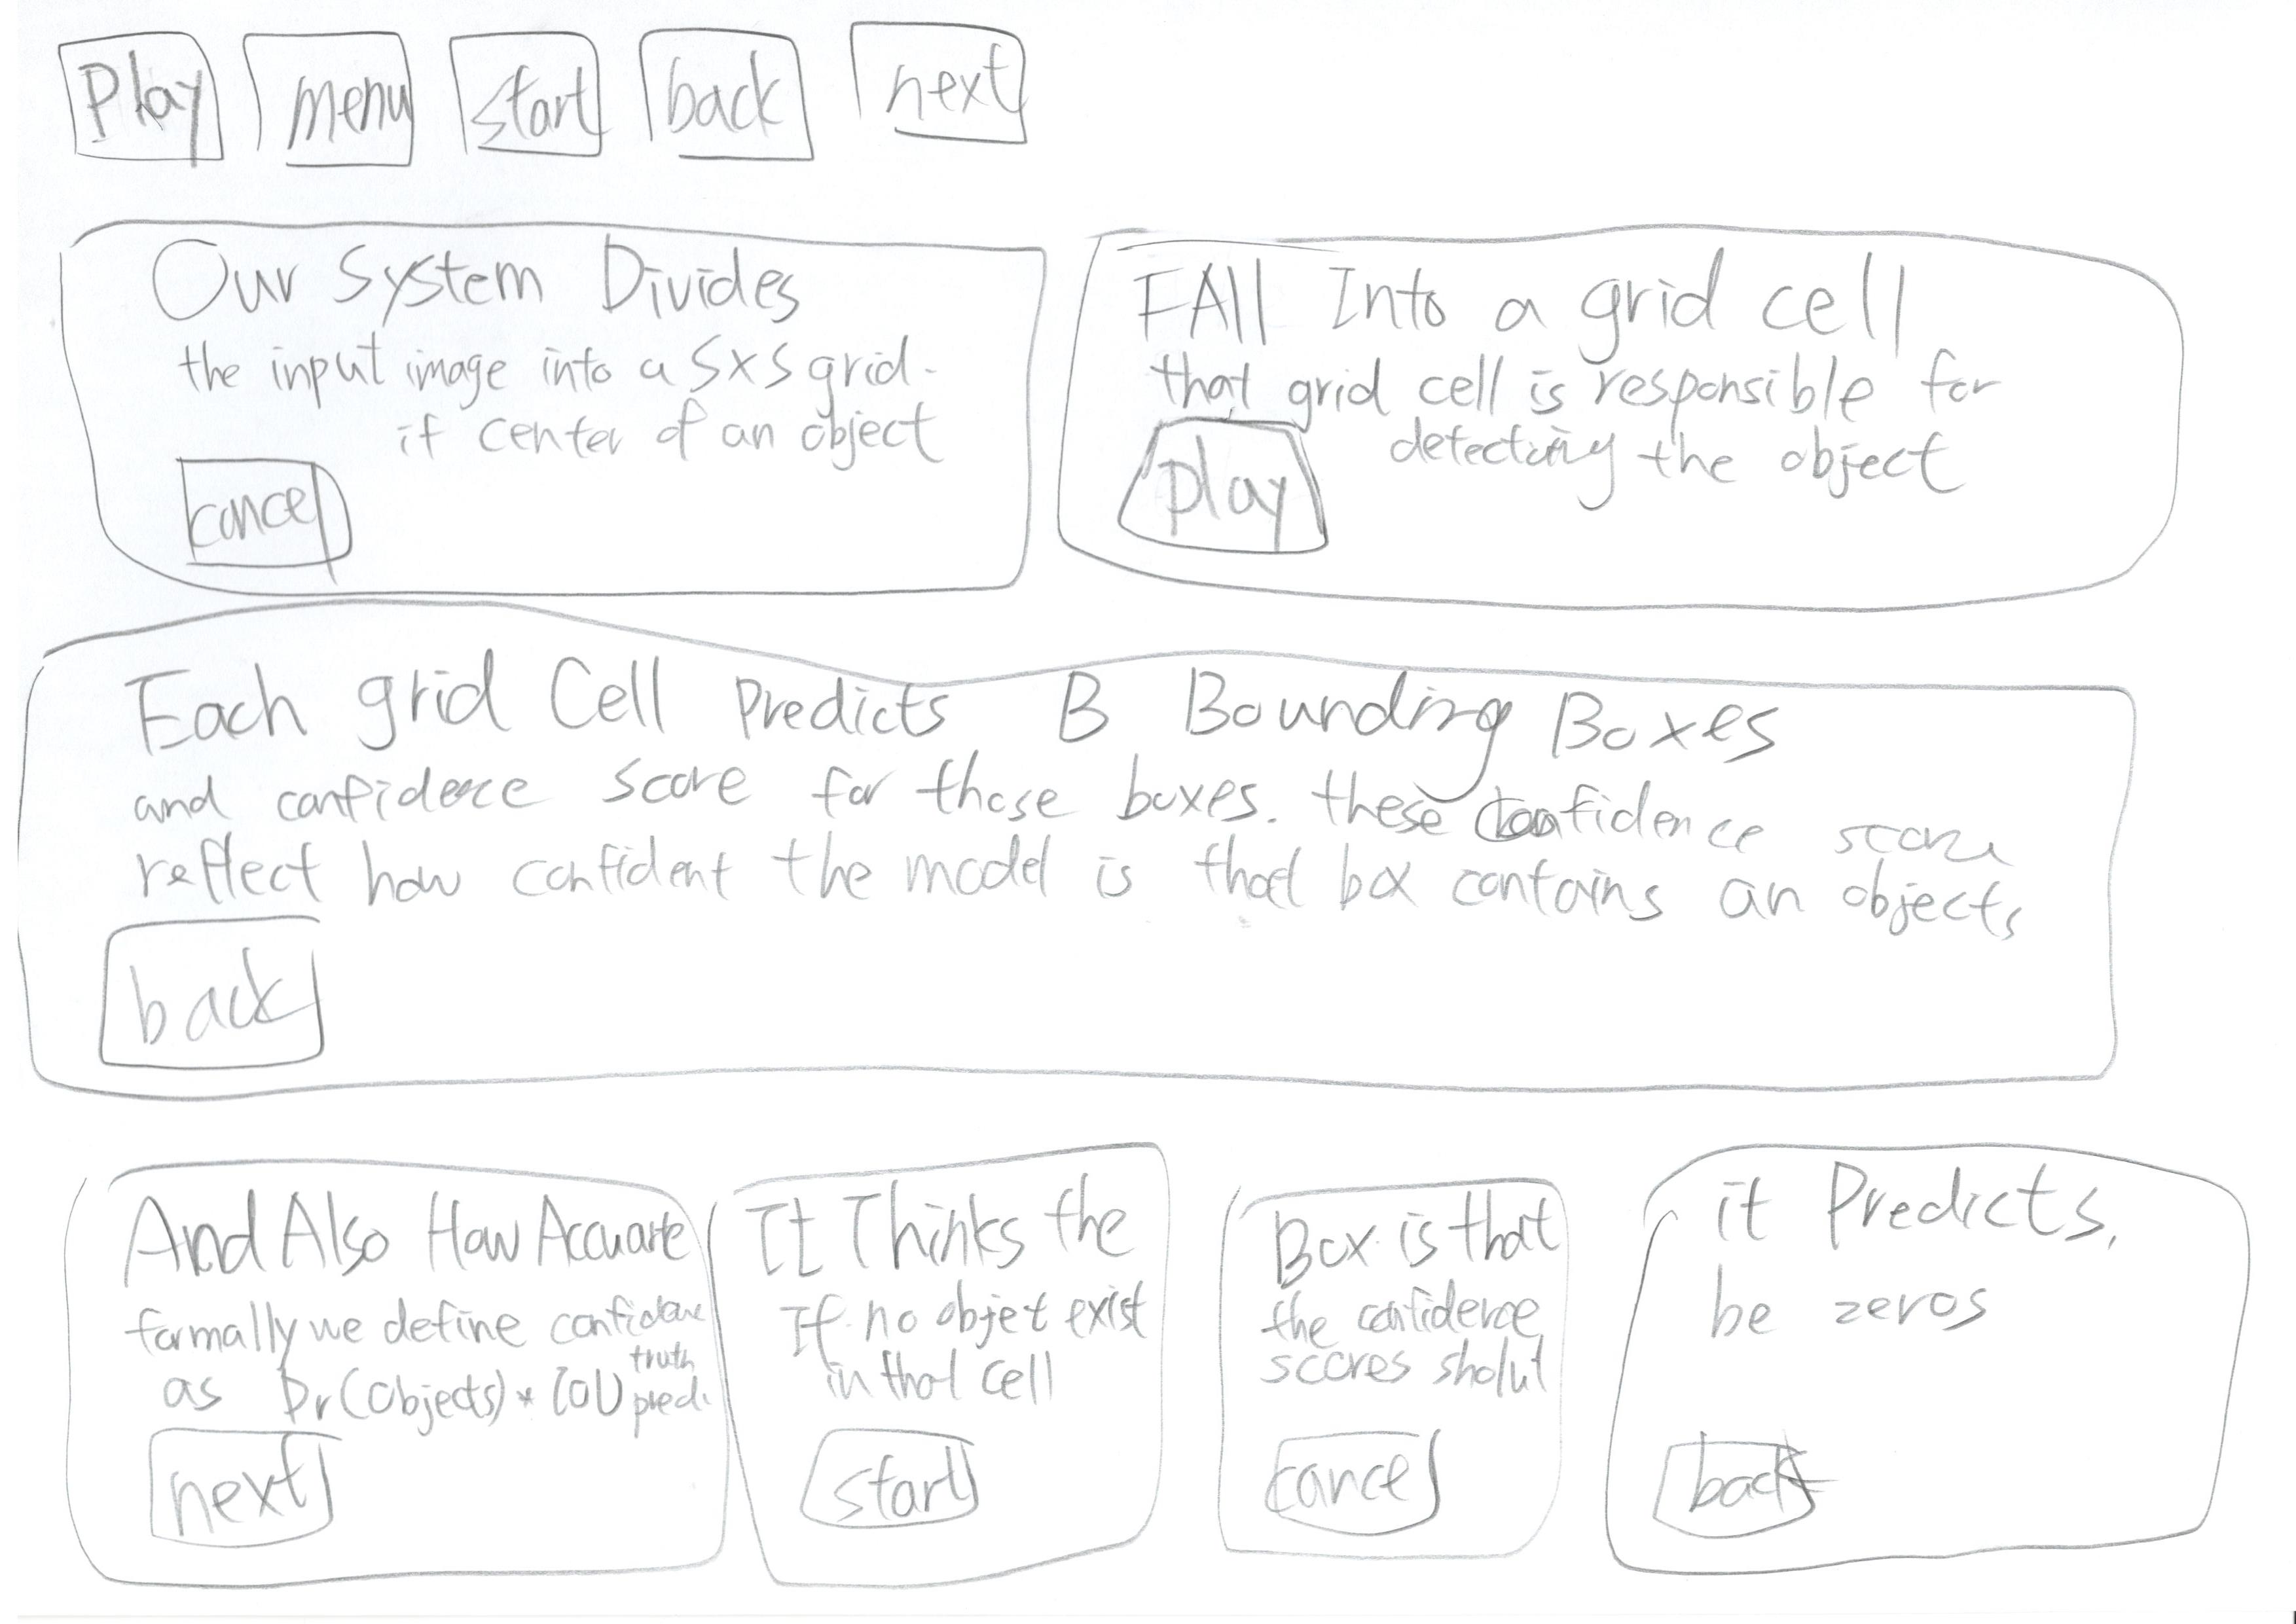 Play menu start back next
Our System Divides
the input image into a SxS grid.
if center of an object
cancel
FAll Into a grid cell
that grid cell is responsible for
detecting the object
play
Each grid Cell Predicts B Bounding Boxes
and confidence score for those boxes. these confidence score
reflect how confident the model is that box contains an objects
back
And Also How Accuarte
formally we define confidence
as Pr(Objects) * IOU truth pred.
next
It Thinks the
If no objet exist
in that cell
start
Box is that
the confidence
scores sholul
cancel
it Predicts,
be zeros
back